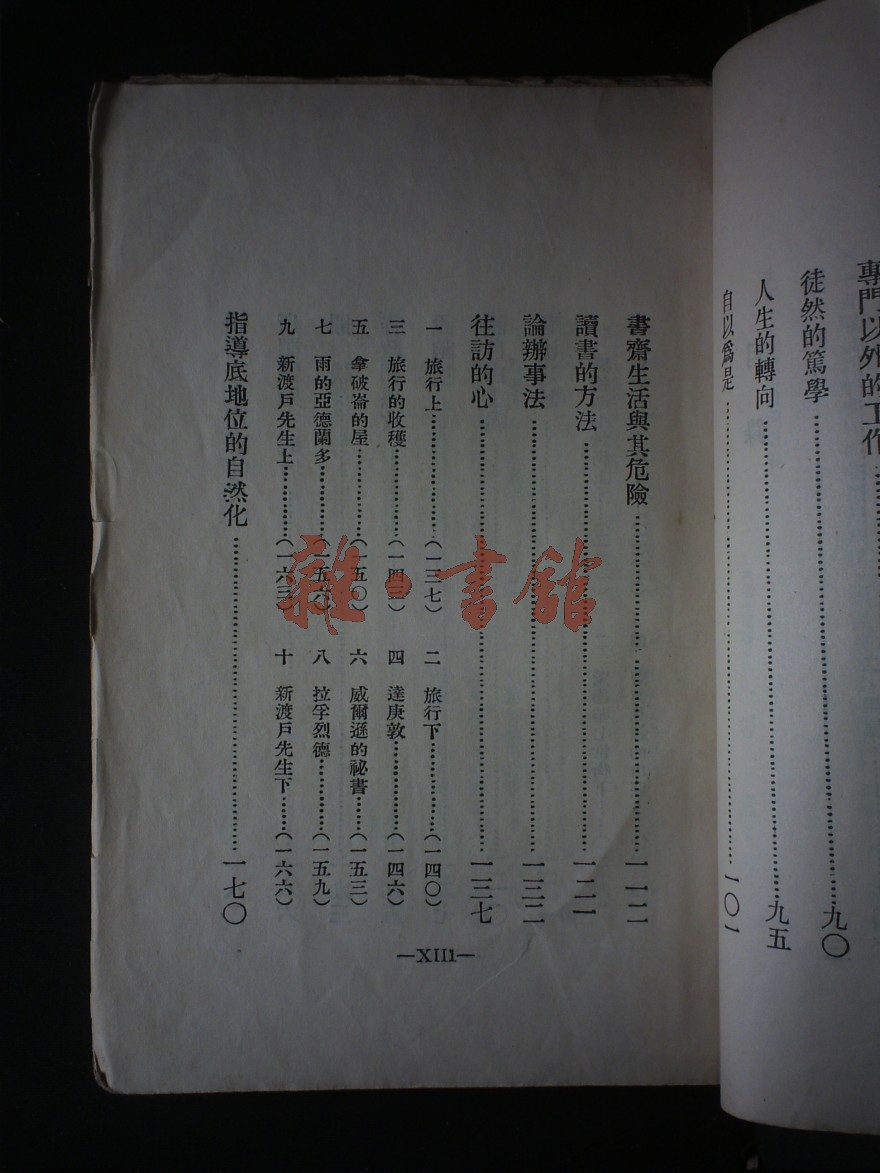 專門以外的工作……
徒然的篤學……九〇
人生的轉向……九五
自以爲是……一〇一
書齋生活與其危險……一一二
讀書的方法……一二一
論辦事法……一三二
往訪的心……一三七
一 旅行上……(一三七) 二 旅行下……(一四〇)
三 旅行的收穫……(一四三) 四 達庚敦……(一四六)
五 拿破崙的屋……(一五〇) 六 威爾遜的祕書……(一五三)
七 雨的亞德蘭多……(一五六) 八 拉孚烈德……(一五九)
九 新渡戶先生上……(一六三) 十 新渡戶先生下……(一六六)
指導底地位的自然化……一七〇
—XIII—
雜·書館